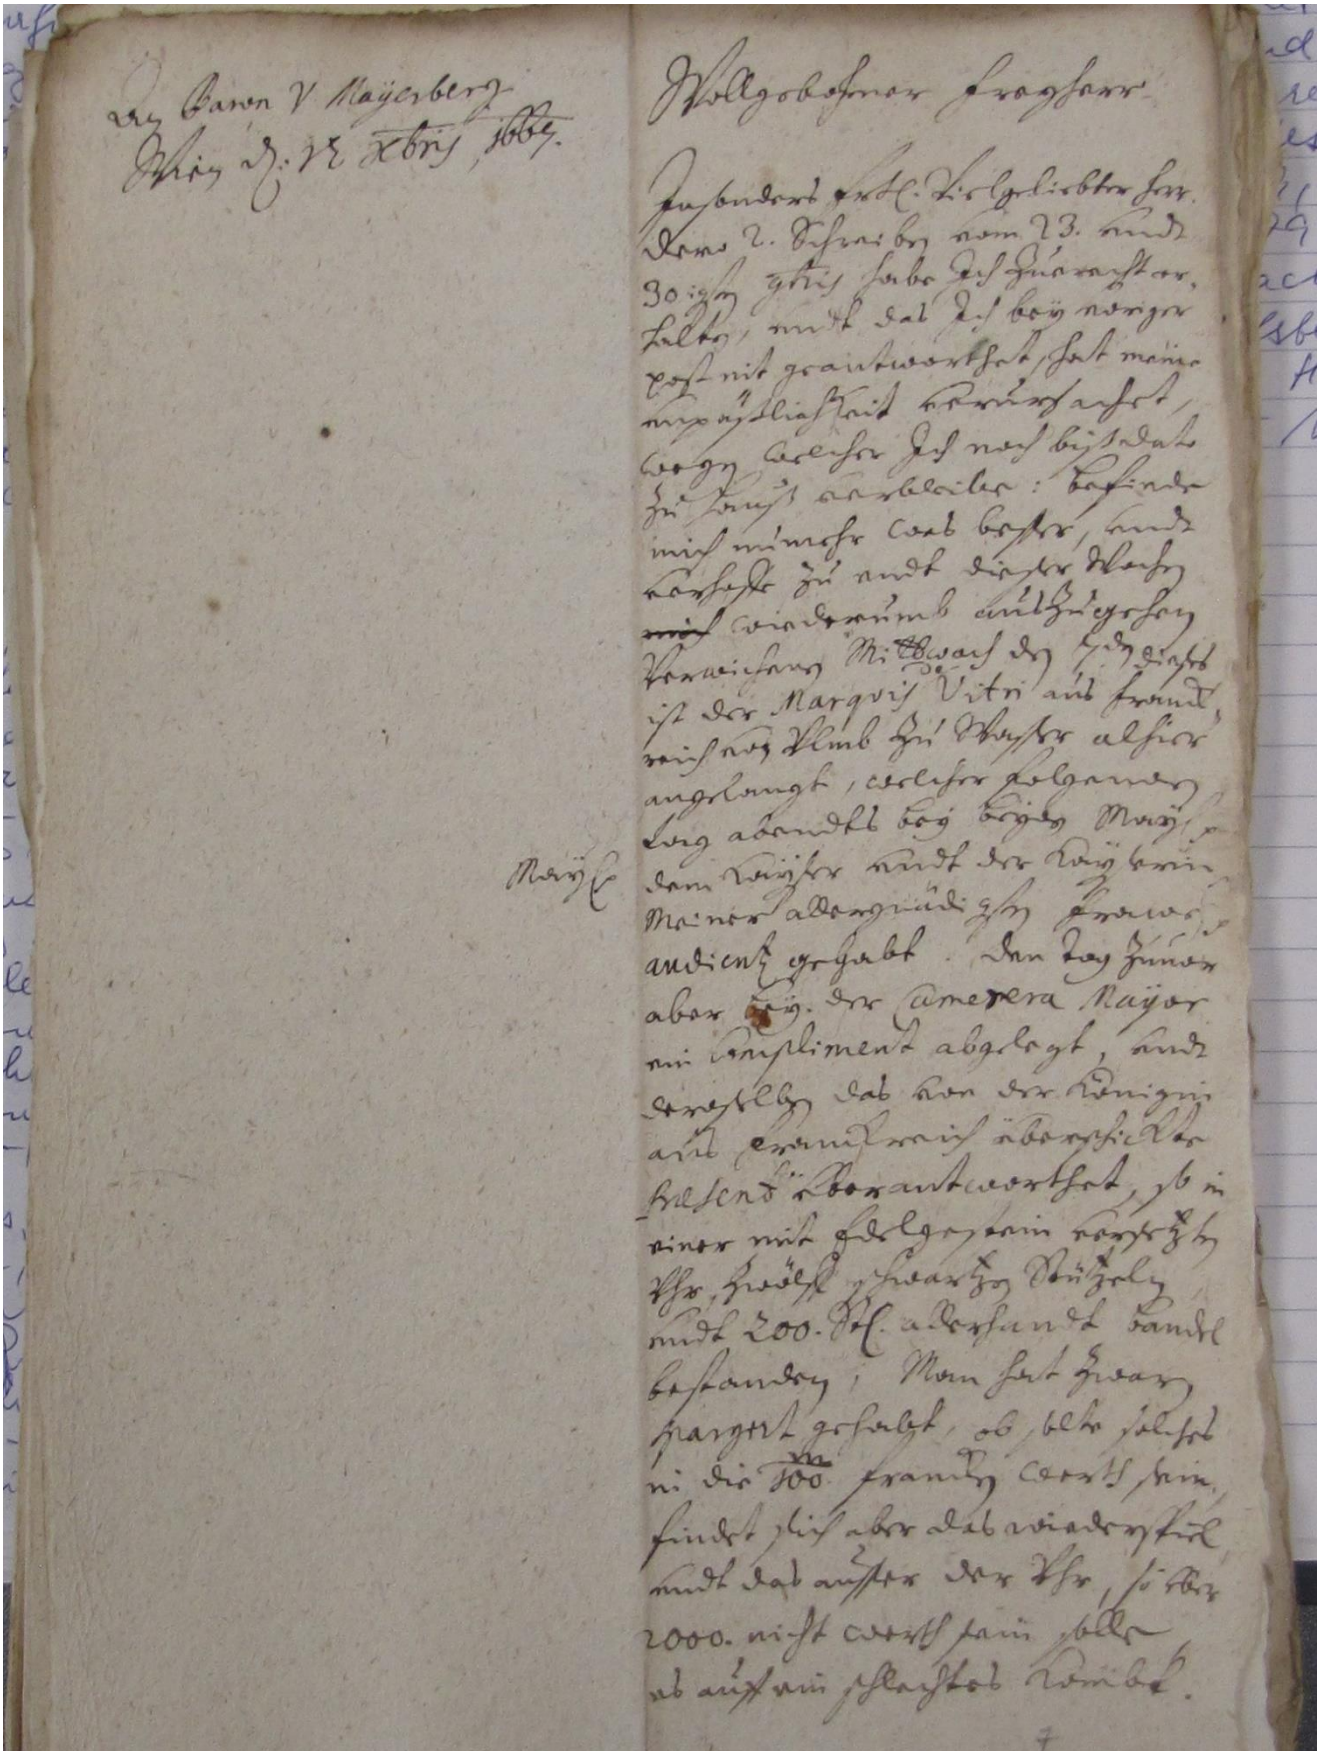 An Baron V Mayersberg
Wien d: 12 Xbris 1667.
Wollgebohrner Freyherr
Insonders frdl. Vielgeliebter Herr.
dero 2. Schreiben vom 23. undt
30igsten 9bris habe Ich zuerecht er-
halten, undt das Ich bey voriger
post nit geantworthet, hat meine
unpäßlichkeit verursachet,
wegen welcher Ich noch biß dato
zu hauß verbleibe: befinde
mich nunmehr was besser, undt
verhoffe zu endt dieser Wochen
mich wiederumb auszugehen
Verwichenen Mittwoch den 7den dieses
ist der Marqvis de Vitri aus Franck-
reich von Ulmb zu Wasser alhier
angelangt, welcher folgenden
tag abendts bey beyden May:
May:
dem Kayser undt der Kayserin
Meiner allergnädigsten Frawen
audientz gehabt. den tag zuuor
aber bey der Camerera Mayor
ein Compliment abgelegt, undt
deroselben das von der Königin
aus Franckreich überschickte
præsent überantworthet, so in
einer mit Edelgestein versetzten
Uhr, zwölff schwartzen Stützeln
undt 200. Stl. allerhandt bandel
bestanden; Man hat zwar
spargirt gehabt, ob solte solches
in die 100 m francken werth sein,
findet sich aber das wiederspiel
undt das ausser der Uhr, so über
2000. nicht werth sein solle
es auff ein schlechtes kombt.